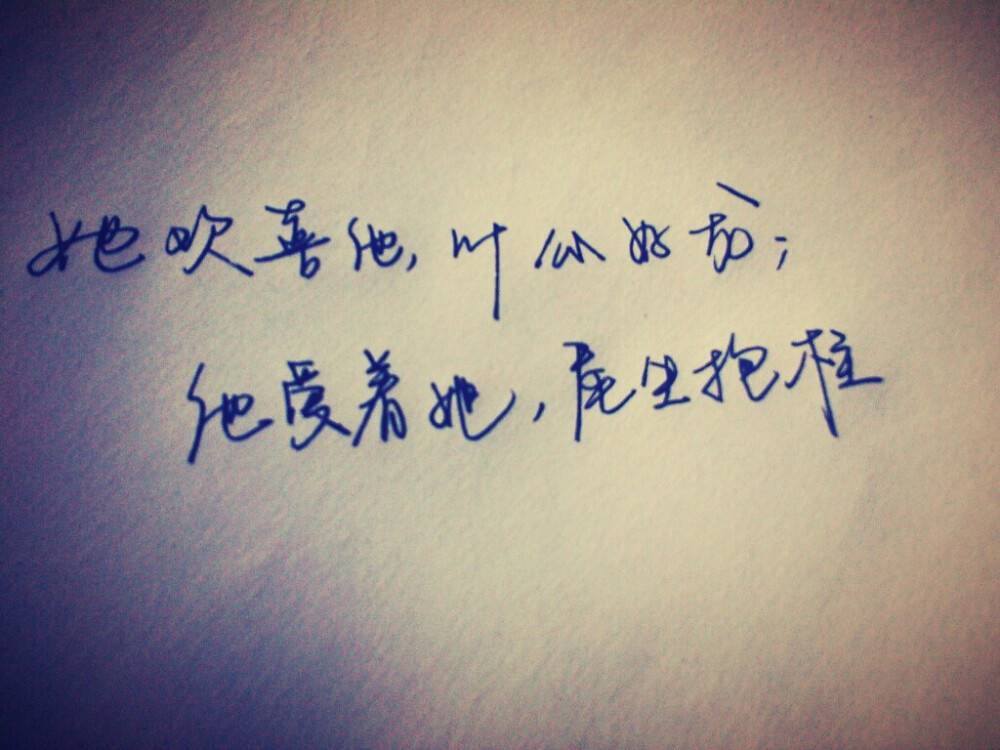 她欢喜他,叶公好龙;
他爱着她,尾生抱柱